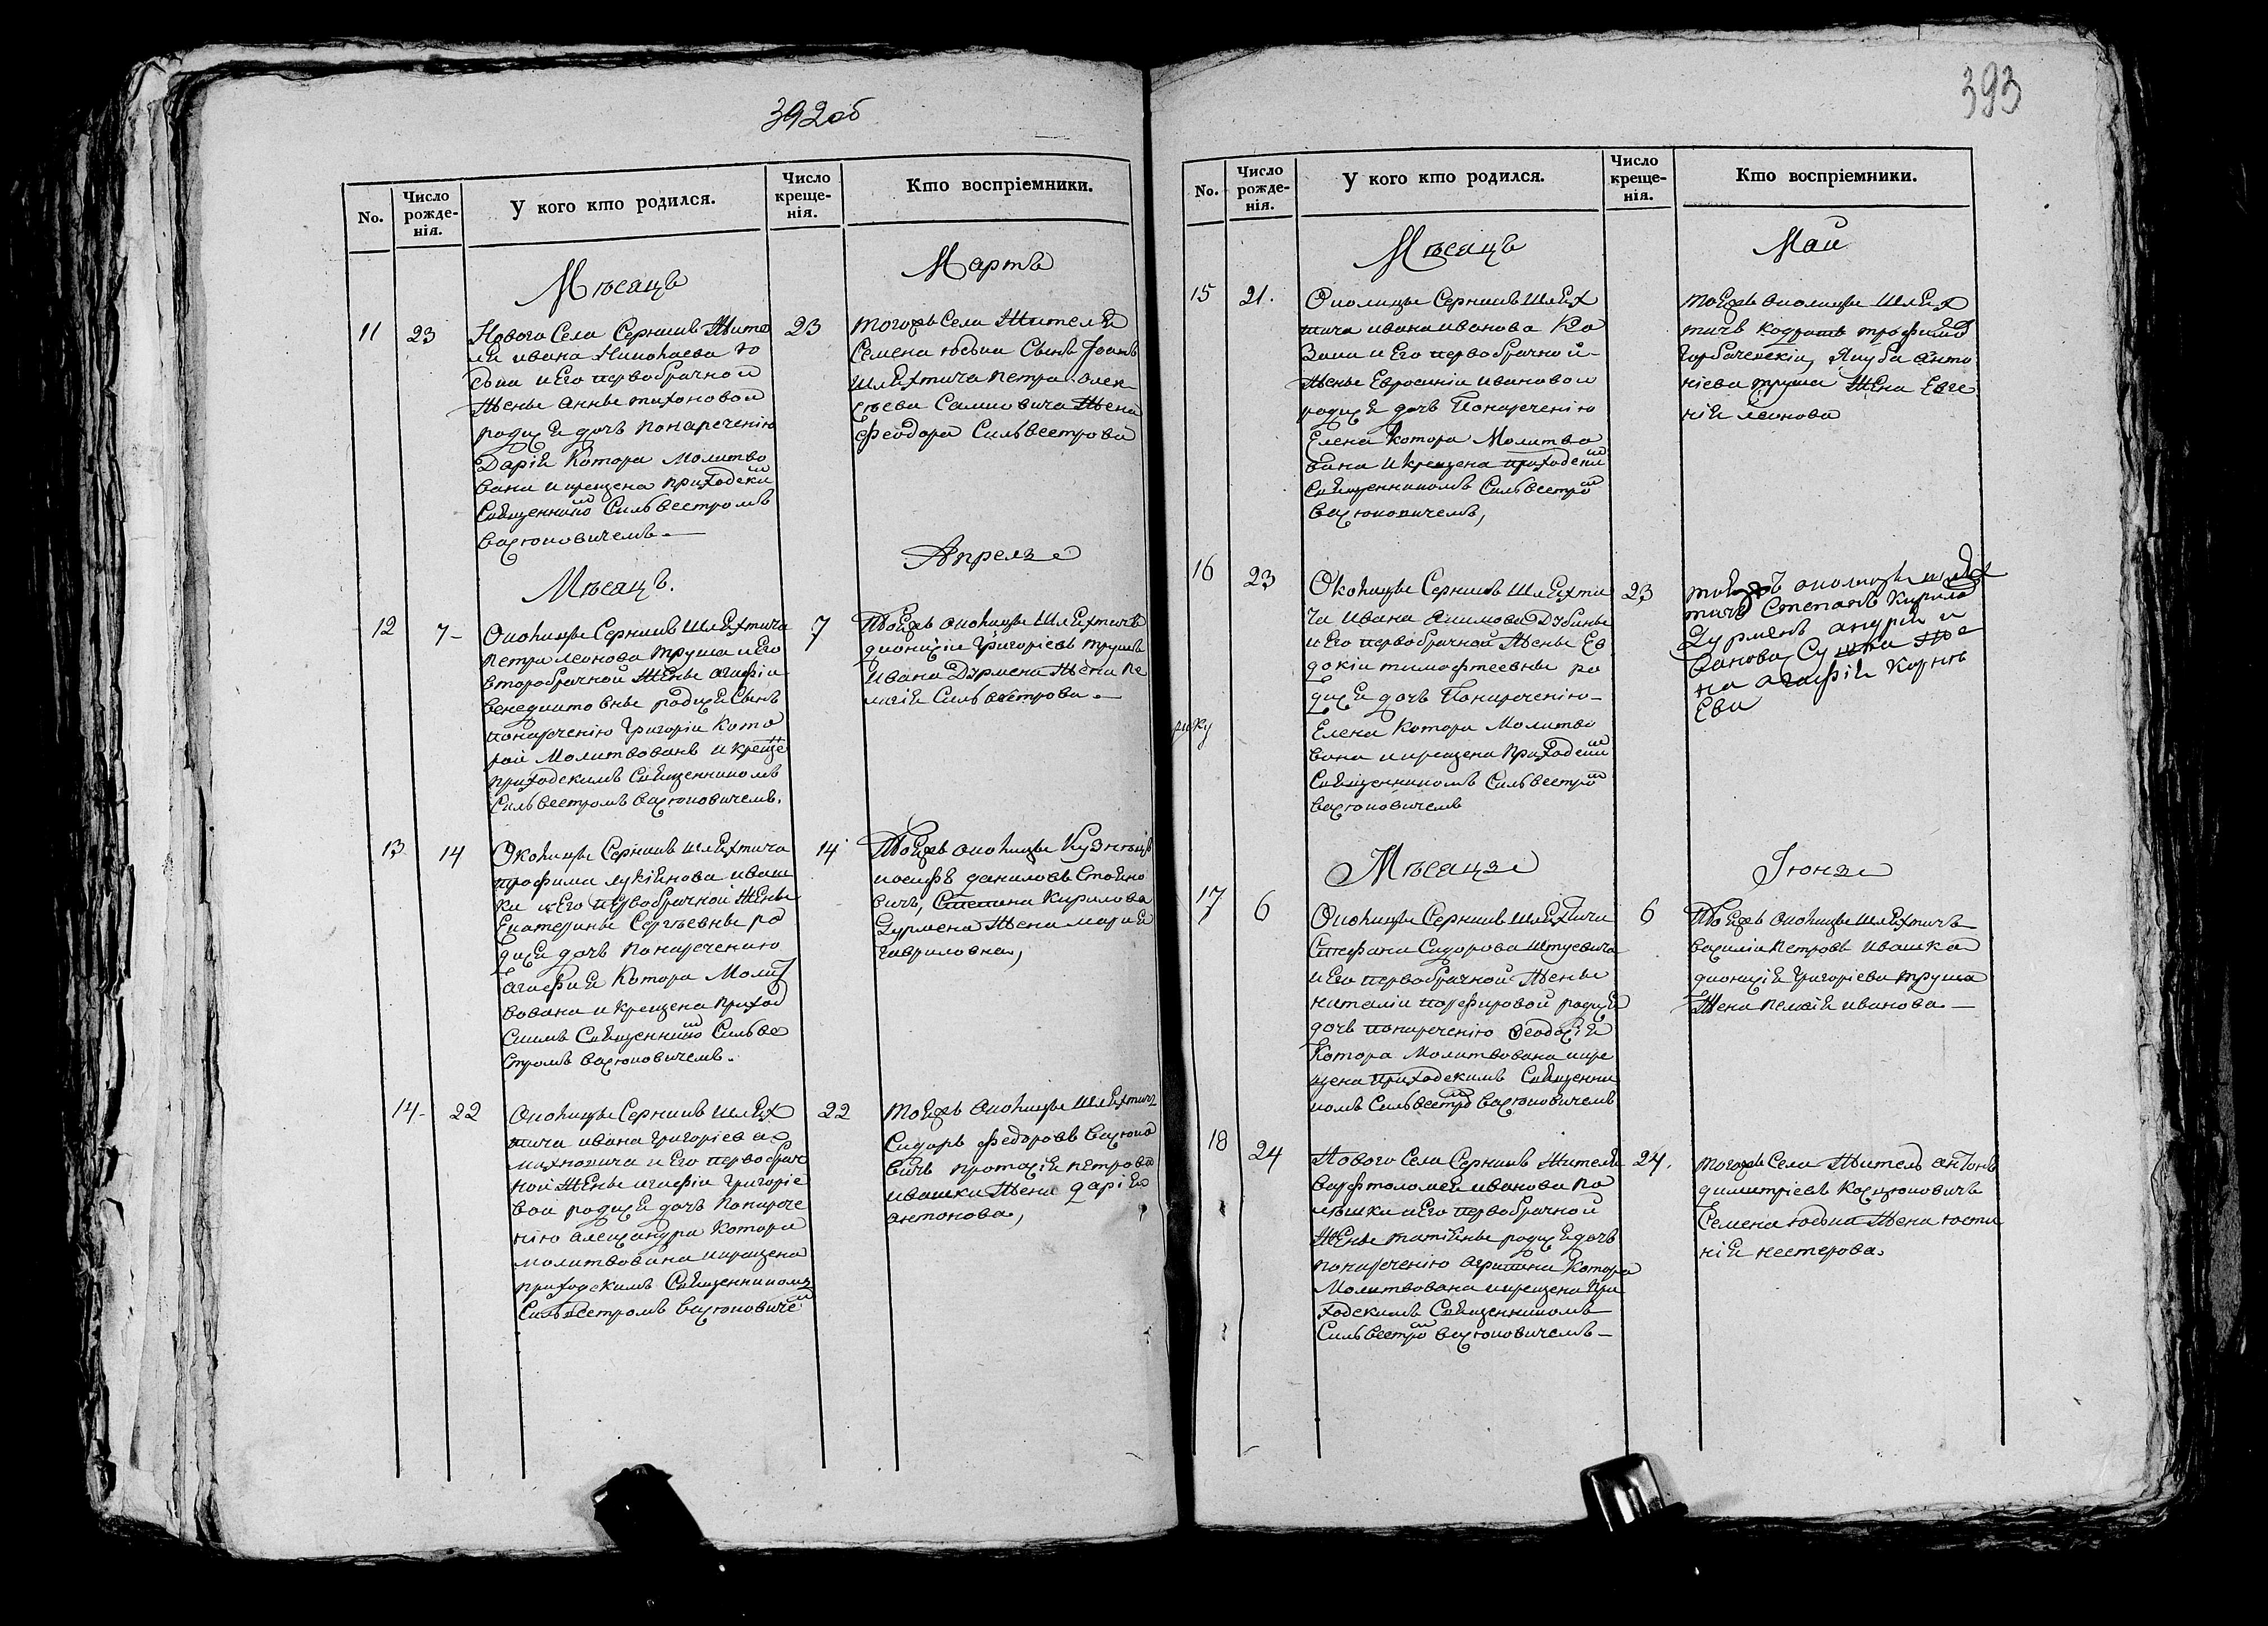 392об
No.
Число рожде-нія.
У кого кто родился.
Число креще-нія.
Кто воспріемники.
Мѣсяцъ
Мартъ
11
23
Нового Села Серникъ Жите
ля ивана Николаева Ю
дына и Его первобрачной
Женьі Анньі тихоновой
родися дочъ понареченію
Дарія Котора Молитво
вана икрещена приходски
Священнико Сильвестромъ
23
тогожъ Села Жителя
Семена юдына Сынъ Іоанъ
шляхтича петра Олек
сѣева Жена
Феодора Сильвестрова
Мѣсяцъ.
Апрель
12
7
Околицьі Серникъ шляхтича
петра леонова труша и Его
второбрачной Женьі агафіи
венедиктовньі родися Сынъ
понареченію Григоріи Кото
рой Молитвованъ и креще
приходскимъ Священникомъ
Сильвестромъ
7
Тоїжъ околицьі шляхтичъ
дионизіи Григоріевъ трушъ
Ивана Дурмена Жена Пе
лагія Сильвестрова
13
14
Околицьі Серникъ шляхтича
трофима лукіянова иваш
ки и Его первобрачной Женьі
Екатериньі Сергѣевньі ро
дися дочъ понареченію
агафия Котора Молит
вована и крещена приход
скимъ Священнико Сильве
стромъ
14
Тоїжъ околицьі Кузнѣцъ
иосифъ даниловъ Стойно
вичъ, Степана Кирилова
Дурмена Жена мария
Гавриловна,
14
22
Околицьі Серникъ шлях
тича ивана григоріева
махновича и Его первобрач
ной Женьі агафіи Григоріе
вои родися дочъ понарече
нію александра котора
молитвована икрещена
приходскимъ Священникомъ
Сильвестромъ
22
тоїжъ околицьі шляхтичъ
Сидоръ федоровъ
вичъ протасія петрова
ивашки Жена дарія
антонова,
393
No.
Число рожде-нія.
У кого кто родился.
Число креще-нія.
Кто воспріемники.
Мѣсяцъ
Май
15
21.
Околицьі Серникъ шлях
тича ивана иванова Ко
зана и Его первобрачной
Женьі Евросиніи ивановои
родися дочъ Понареченію
Елена котора Молитво
вана и крещена приходски
Священникомъ Сильвестро
тоїжъ околицьі шлях
тичъ трофимо
Горбачевскіи, Якуба Анто
ніева труша Жена Евге
нія леонова
16
23
Околицьі Серникъ шляхти
ча ивана Дубиньі
и Его первобрачной Женьі Ев
докіи тимофтеевньі ро
дися дочъ Понареченію
Елена котора Молитво
вана икрещена приходски
Священникомъ Сильвестро
23
тоїжъ околицьі шлях
тичъ Степанъ Кирило
Дурменъ андрия и
ванова Же
на агафія Корнѣ
Ева
Мѣсяцъ
Іюнь
17
6
Околицьі Серникъ шляхтича
Стефана Сидорова
и Его первобрачной Женьі
наталіи порфировой родися
дочъ понареченію Феодосія
котора Молитвована икре
щена приходскимъ Священни
комъ Сильвестро
6
Тоїжъ околицьі шляхтичъ
василіи петровъ ивашка
дионизія Григоріева труша
Жена пелагія иванова
18
24
Нового Села Серникъ Жителя
варфтоломея иванова
и Его первобрачной
Женьі татіяньі родися дочъ
понареченію агрипина котора
Молитвована икрещена при
ходскимъ Священникомъ
Сильвестро
24.
тогожъ Села Житель антонъ
димитріевъ
Семена юдына Жена юсти
нія нестерова.